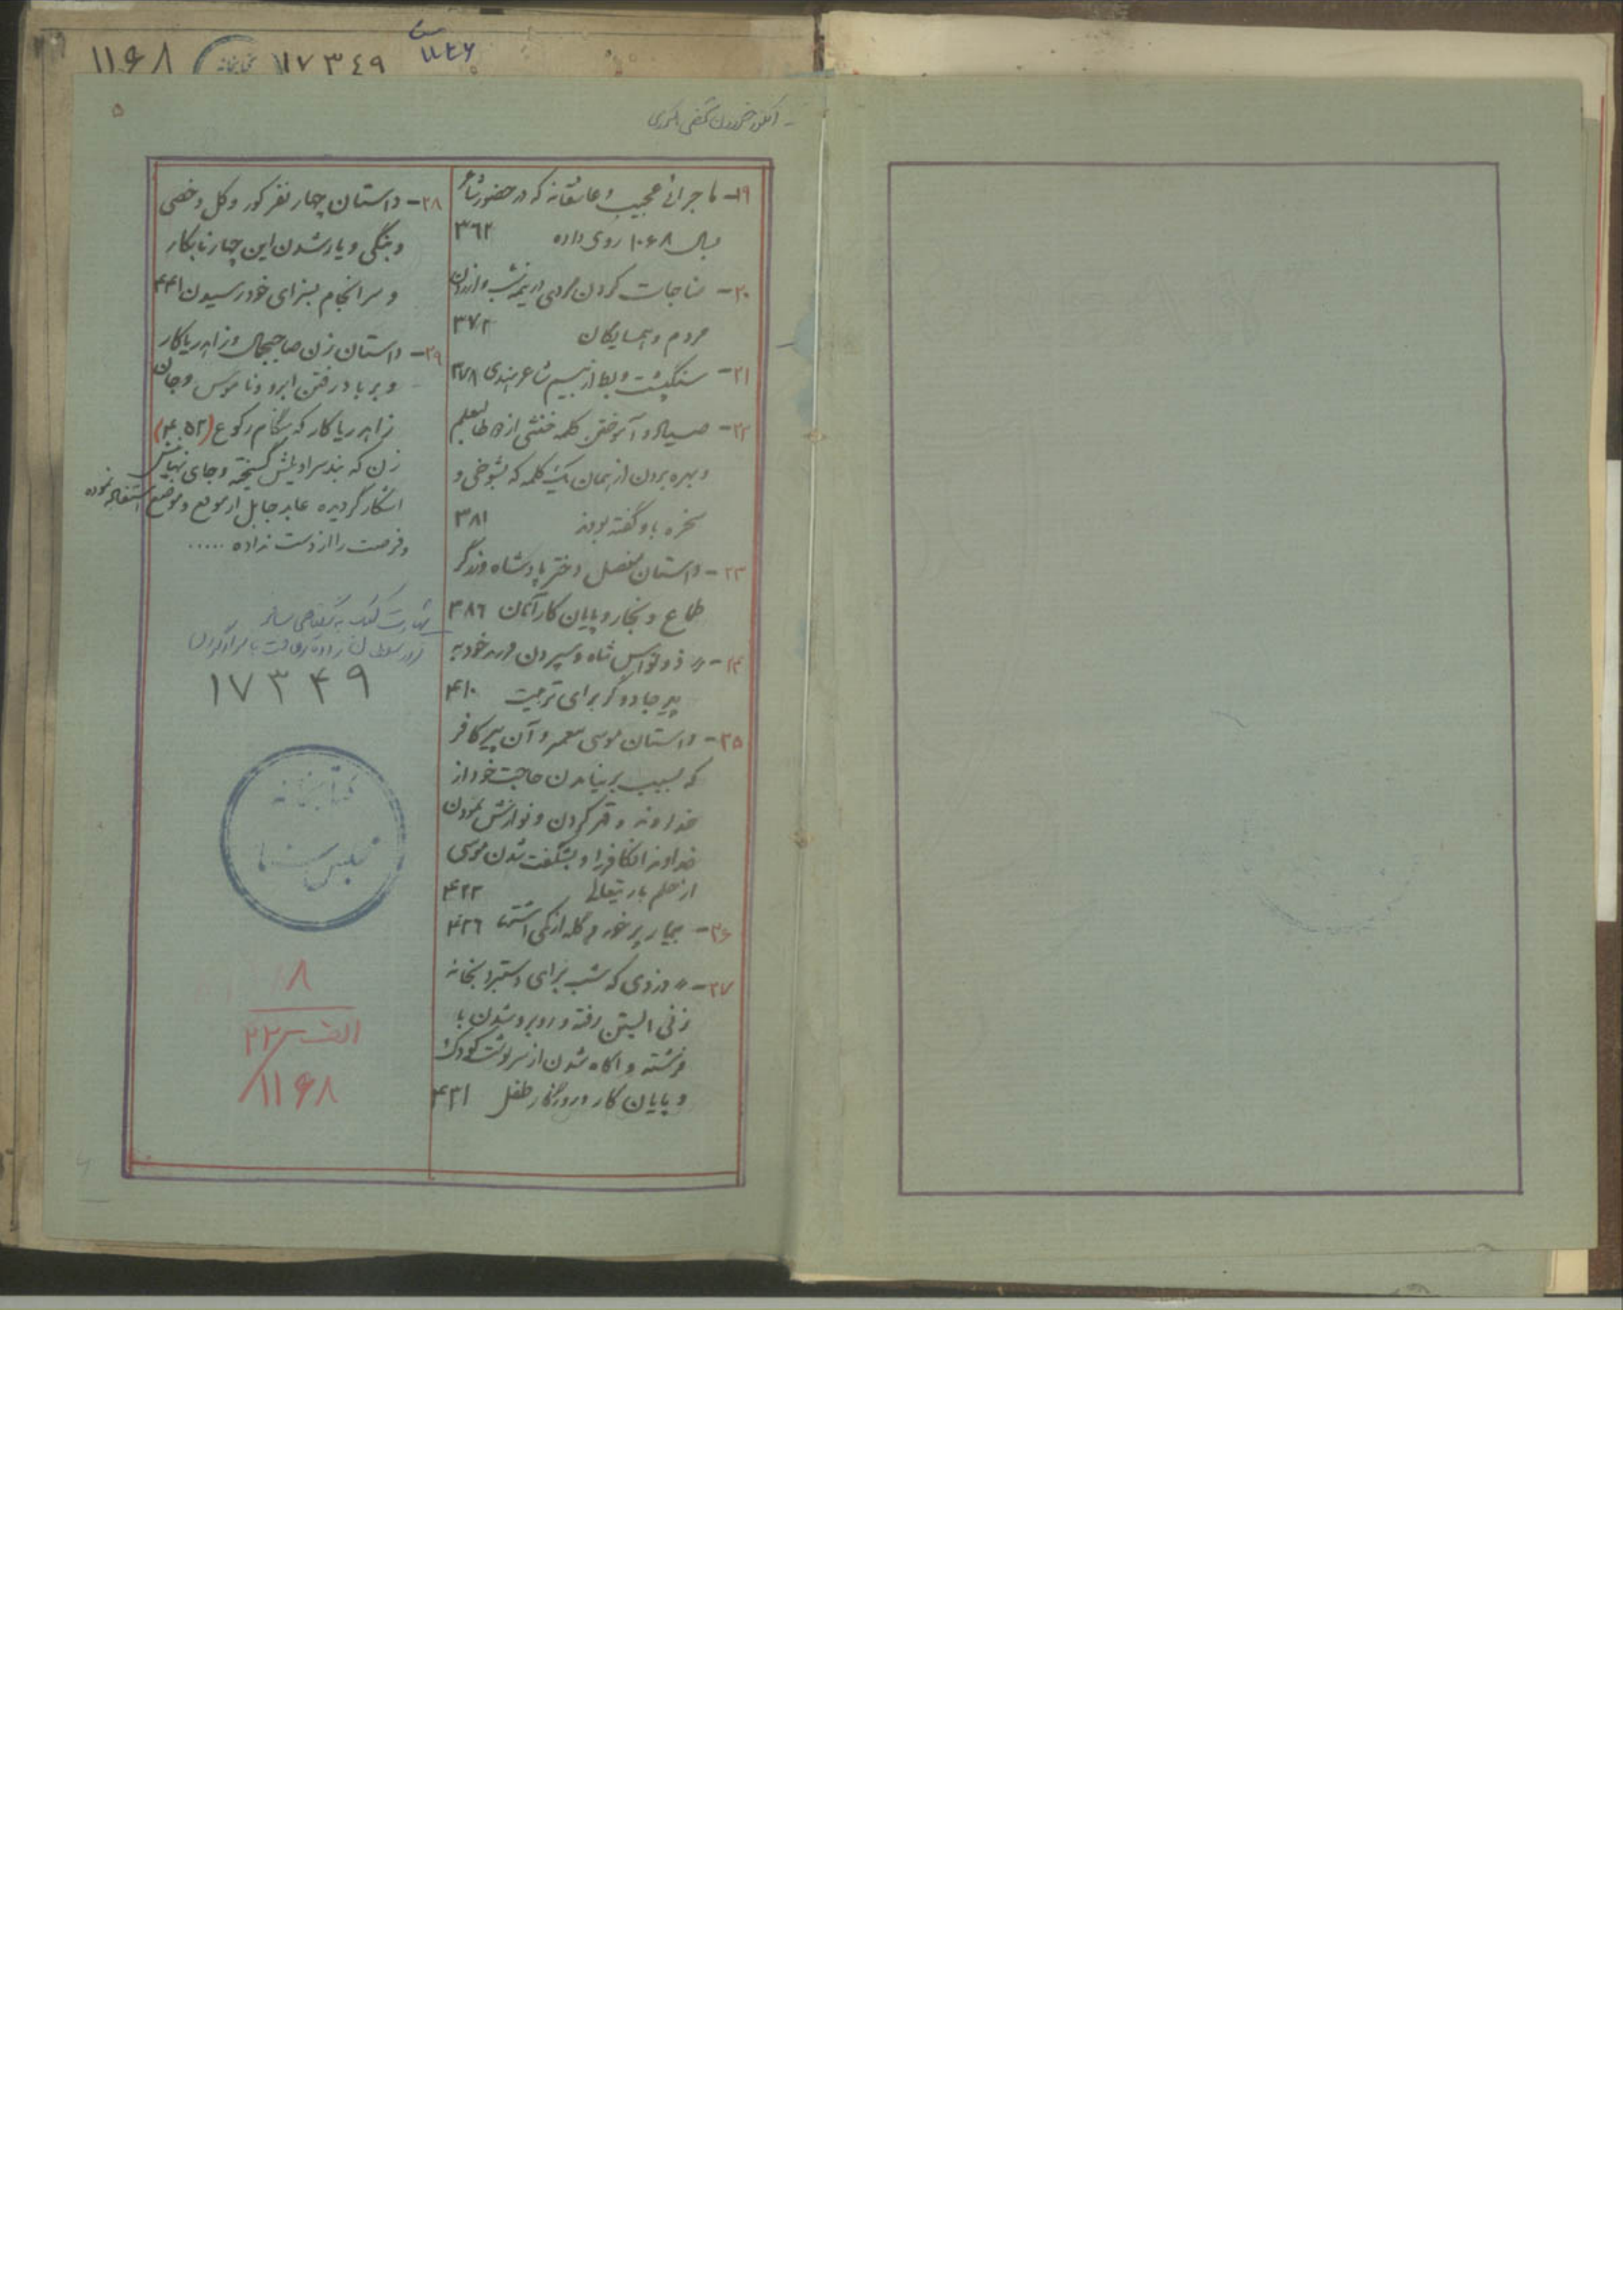 ۱۱۶۸
۱۷۳۴۹
۵
۱۹- ماجرائی عجیب و عاشقانه که در حضور شاعر
بسال ۱۰۶۸ روی داده ۳۶۲
۲۰- مناجات کردن مردی در نیمه شب و آزردن
مردم و همسایگان ۳۷۲
۲۱- سنگپشت و بط از نسیم شاعر هندی ۳۷۸
۲۲- صیاد و آموختن کلمه خنثی از طالبعلم
و بهره بردن از همان یک کلمه که بشوخی و
سخره باو گفته بودند ۳۸۱
۲۳- داستان مفصل دختر پادشاه و زرگر
طماع و نجار و پایان کار آنان ۳۸۶
۲۴- " ذونواس شاه و سپردن فرزند خود به
پیر جادوگر برای تربیت ۴۱۰
۲۵- داستان موسی معمر و آن پیر کافر
که بسبب برنیامدن حاجت خود از
خداوند و قهر کردن و نوازش نمودن
خداوند آنکافر را و بشگفت شدن موسی
از حلم باریتعالی ۴۲۲
۲۶- بیمار پرخور و گله از کمی اشتها ۴۲۶
۲۷- " دزدی که شب برای دستبرد بخانه
زنی آبستن رفته و روبرو شدن با
فرشته و آگاه شدن از سرنوشت کودک
و پایان کار و روزگار طفل ۴۳۱
۲۸- داستان چهار نفر کور و کل و خصی
و بنگی و یار شدن این چهار نابکار
و سرانجام بسزای خود رسیدن ۴۴۱
۲۹- داستان زن صاحبجمال و زاهد ریاکار
و بر باد رفتن آبرو و ناموس و جان
زاهد ریاکار که هنگام رکوع (۴۵۲)
زن که بند سراویلش گسیخته و جای نهانیش
آشکار گردیده عابد جاهل از موقع و موضع استفاده نموده
و فرصت را از دست نداده .....
۱۷۳۴۹
کتابخانه
مجلس سنا
۸
الف ۲۲
۱۱۶۸